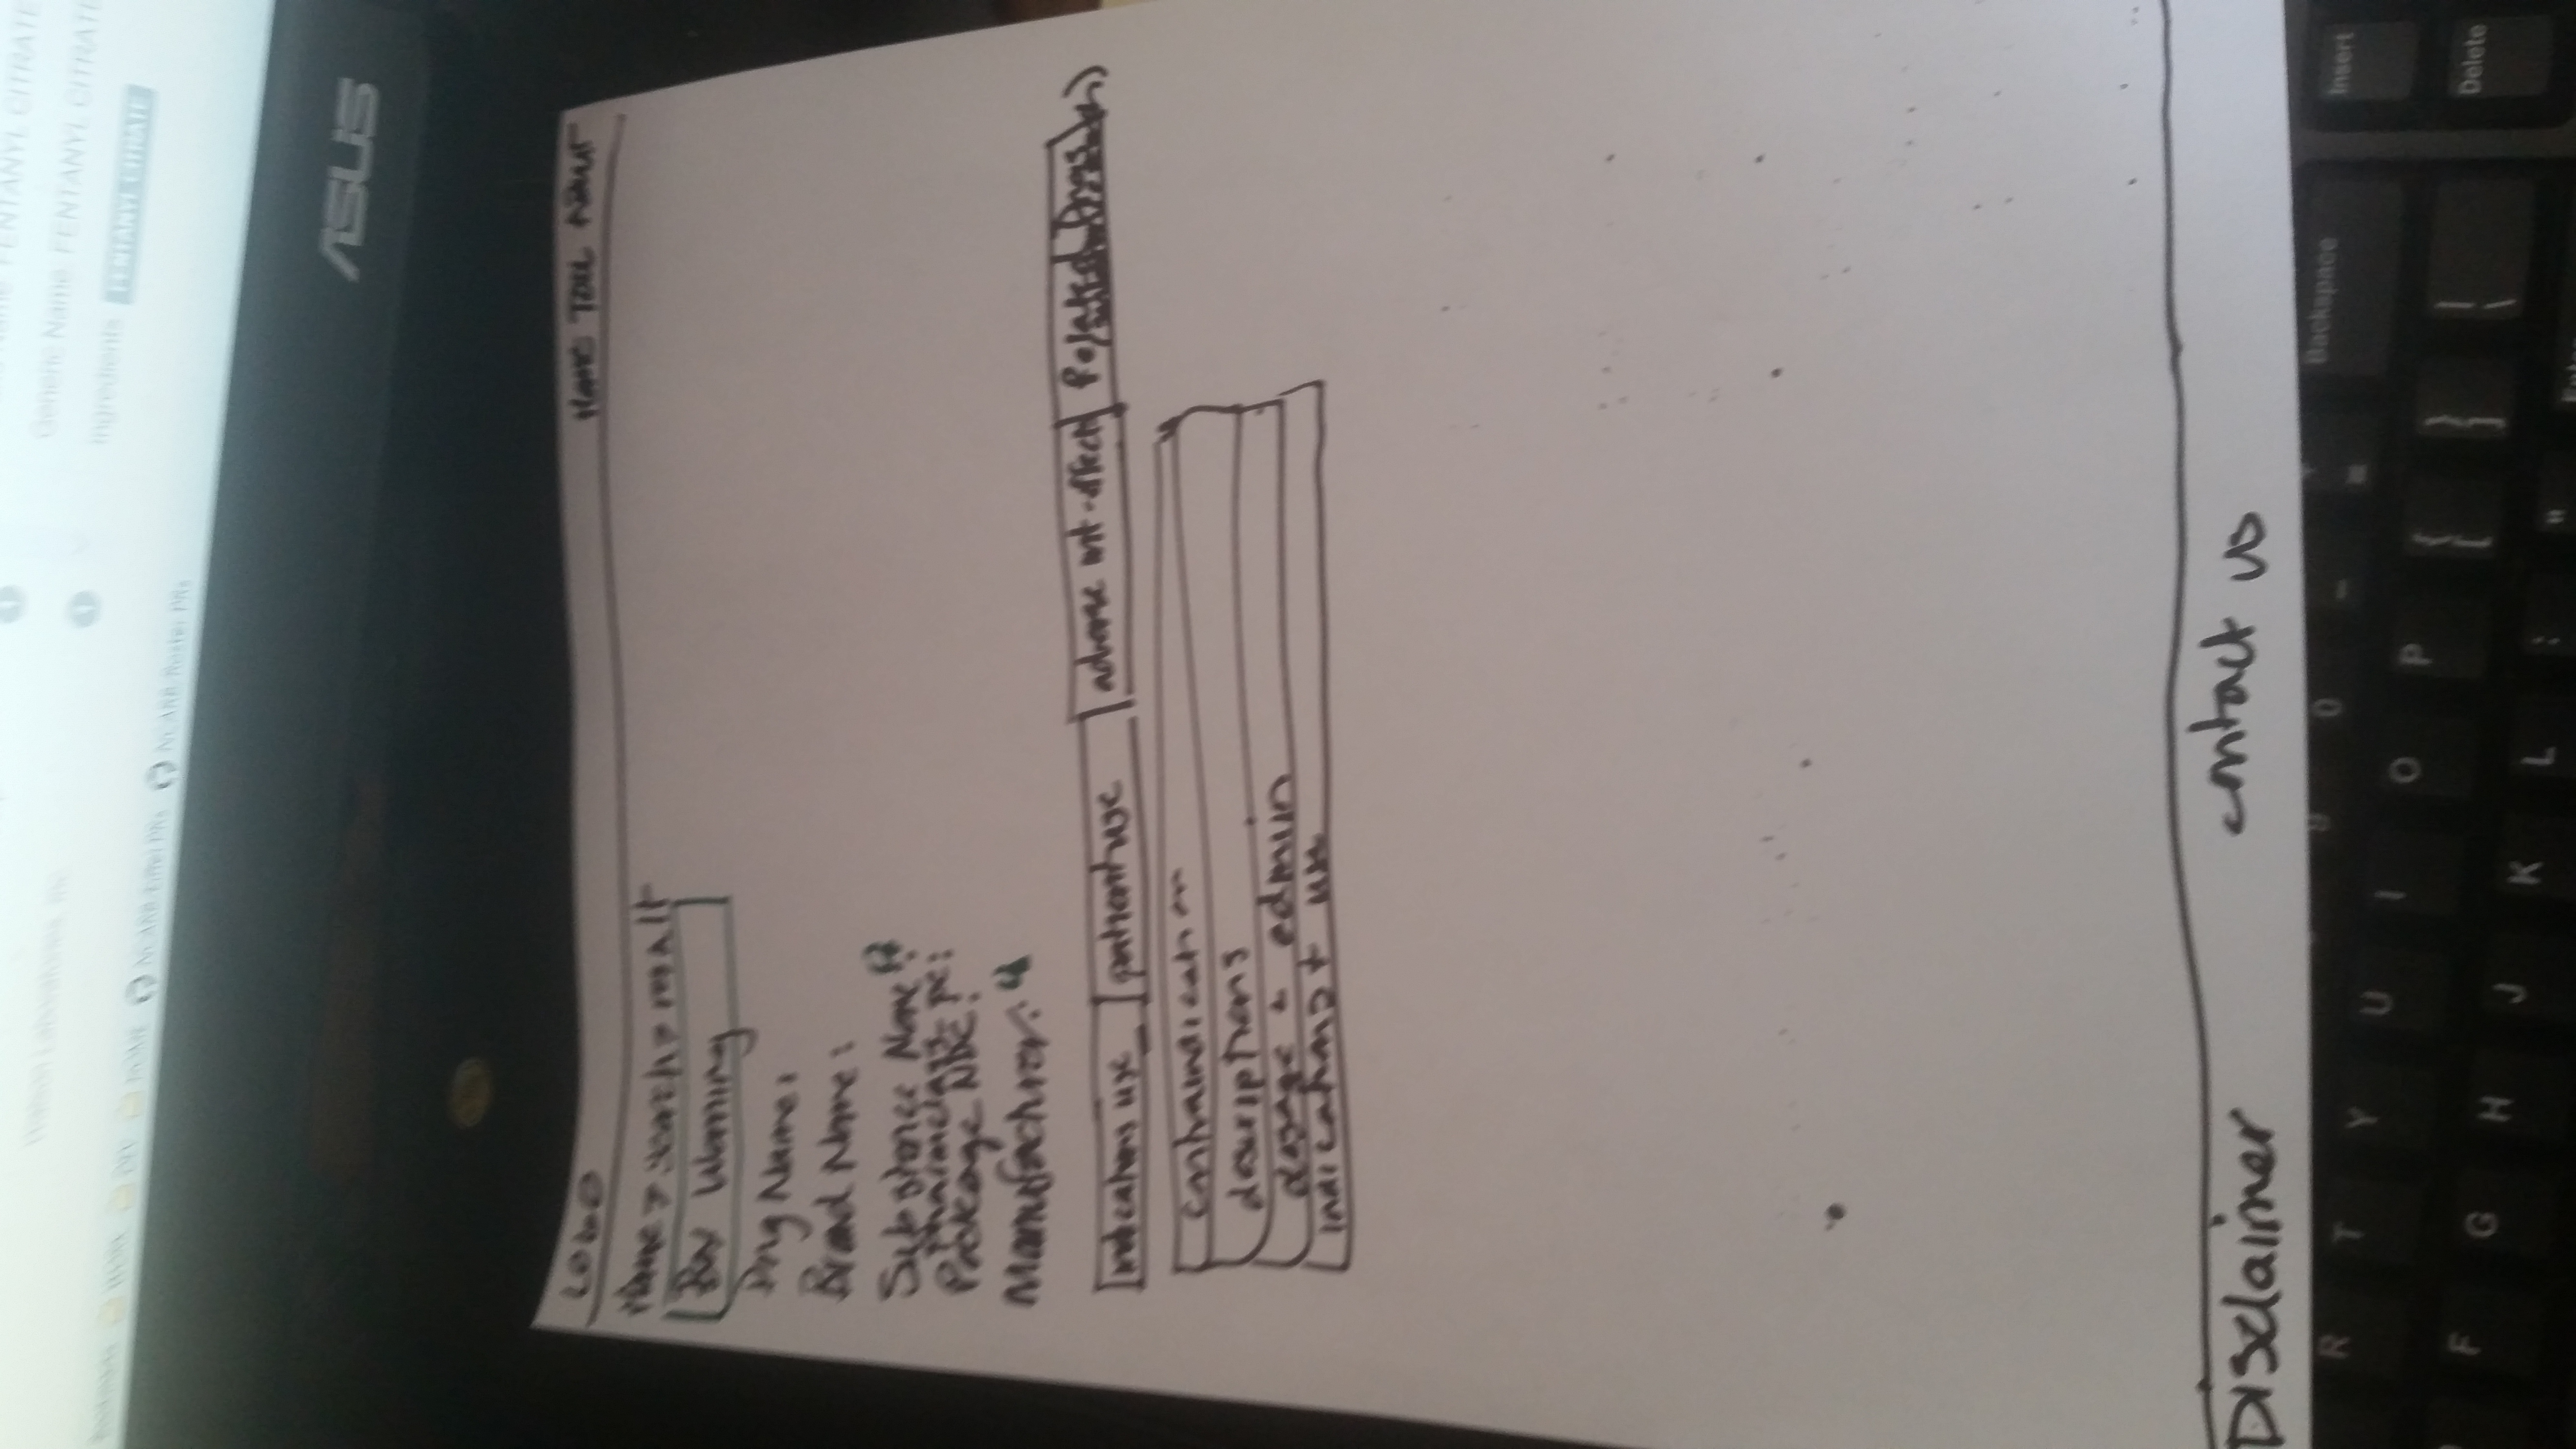 Name: FENTANYL CITRATE
Watson Laboratories, Inc
Generic Name: FENTANYL CITRATE
Ingredients FENTANYL CITRATE
Bookmarks WORK DEV HOME NCARB/Eiffel PRs NCARB/Roster PRs
ASUS
LOGO HOME TOLL ABOUT
Home > search > result
Box Warning
Drug Name:
Brand Name:
Substance Name:
Pharmclass_pe:
Package NDC:
Manufacturer:
indications use patient use adverse int-effect Related Drugs
contraindication
descriptions
dosage + admin
indications + use
Disclaimer contact us
9 0 - = Backspace Insert
R T Y U I O P { [ } ] | \ Delete
F G H J K L : " Enter